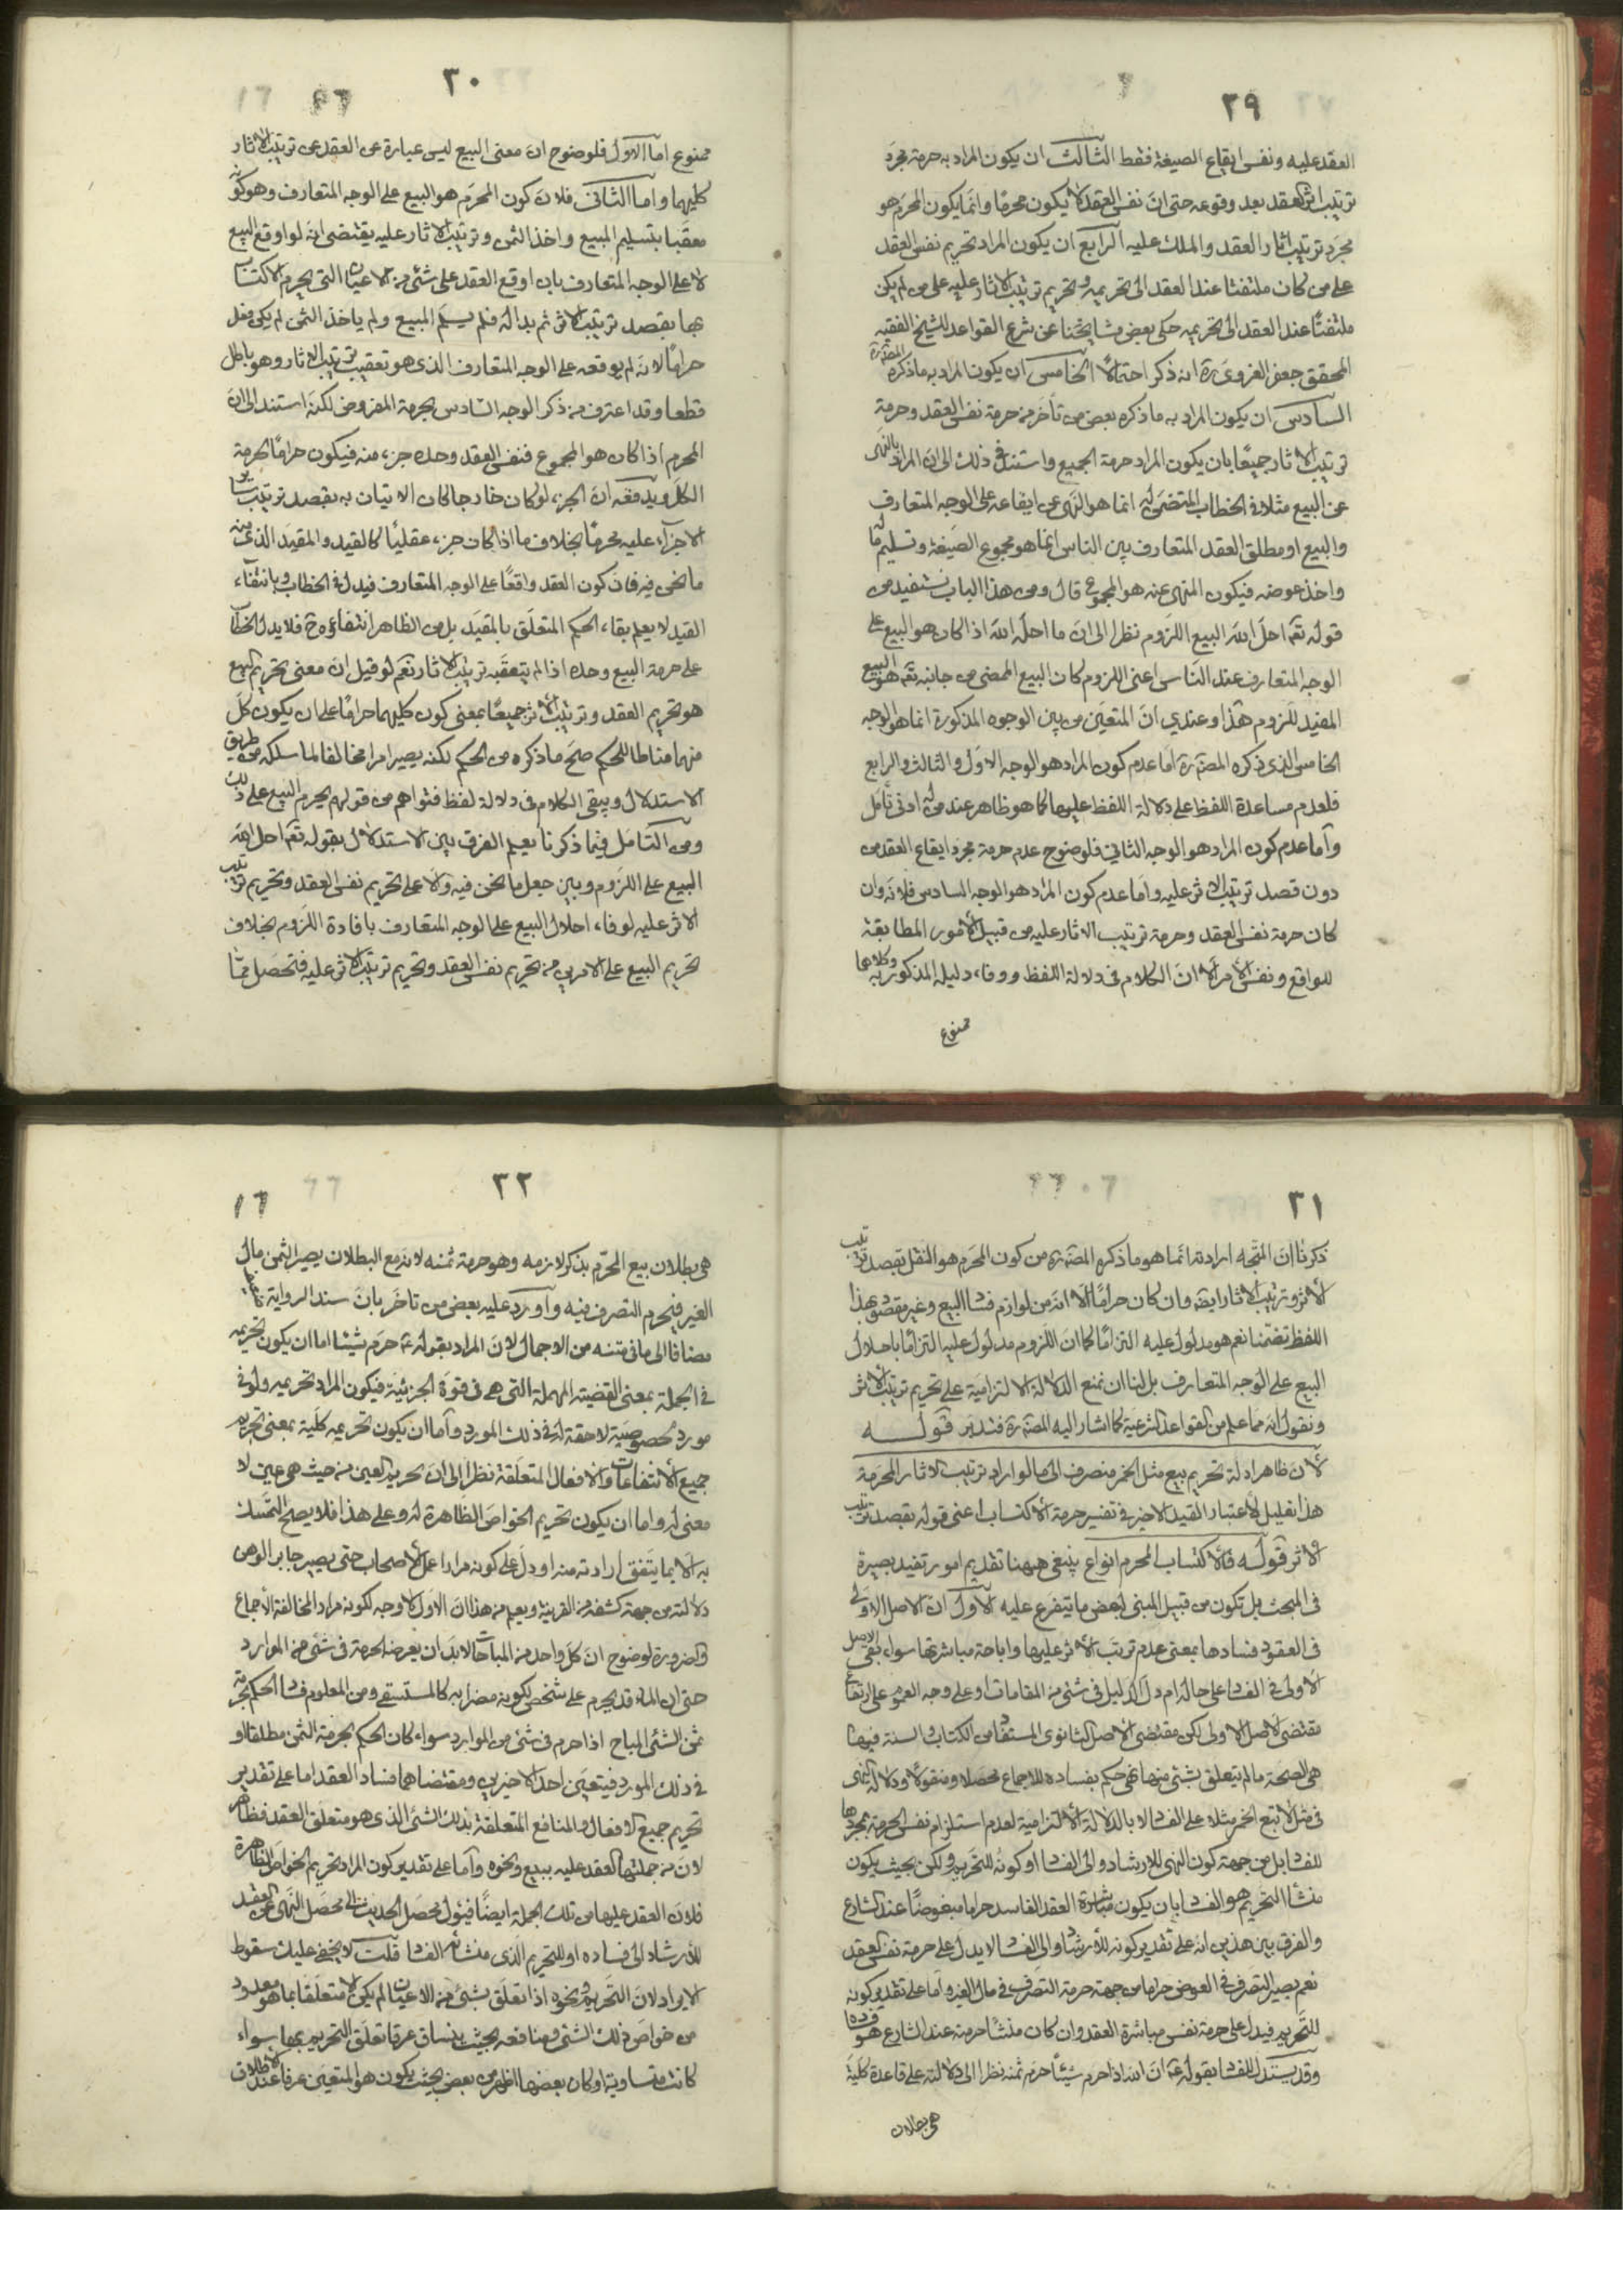 ٢٩
العقد عليه ونفس ايقاع الصيغة فقط الثالث ان يكون المراد به حرمة مجرّد
ترتيب اثر العقد بعد وقوعه حتى انّ نفس العقد لا يكون محرمًا وانّما يكون المحرم هو
مجرّد ترتيب اثار العقد والملك عليه الرابع ان يكون المراد تحريم نفس العقد
على من كان ملتفتا عند العقد الى تحريمه وتحريم ترتيب الاثار عليه على من لم يكن
ملتفتًا عند العقد الى تحريمه حكى بعض مشايخنا عن شرح القواعد للشيخ الفقيه
المحقق جعفر الغروى ره انه ذكر احتمالاً الخامس ان يكون المراد به ما ذكره المصنّف ره
السادس ان يكون المراد به ما ذكره بعض من تأخر من حرمة نفس العقد وحرمة
ترتيب الاثار جميعًا بان يكون المراد حرمة الجميع واستند في ذلك الى ان المراد بالنهى
عن البيع مثلا فى الخطاب المتضمّن له انما هو النهى عن ايقاعه على الوجه المتعارف
والبيع او مطلق العقد المتعارف بين الناس انما هو مجموع الصّيغة وتسليم
واخذ عوضه فيكون المنهى عنه هو المجموع قال ومن هذا الباب نستفيد من
قوله تعه احلّ الله البيع اللزوم نظرا الى انّ ما احلّه الله اذا كان هو البيع على
الوجه المتعارف عند النّاس اعنى اللزوم كان البيع الممضى من جانبه تعه هو البيع
المفيد للّزوم هذا وعندي انّ المتعيّن من بين الوجوه المذكورة انما هو الوجه
الخامس الذى ذكره المصنّف ره امّا عدم كون المراد هو الوجه الاوّل والثالث والرابع
فلعدم مساعدة اللفظ على دلالة اللفظ عليها كما هو ظاهر عند من له ادنى تأمّل
وامّا عدم كون المراد هو الوجه الثاني فلوضوح عدم حرمة مجرد ايقاع العقد من
دون قصد ترتيب الاثر عليه وامّا عدم كون المراد هو الوجه السادس فلانه وان
كان حرمة نفس العقد وحرمة ترتيب الاثار عليه من قبيل الأمور المطابقة
للواقع ونفس الأمر الا انّ الكلام فى دلالة اللفظ ووفاء دليله المذكور به وكلاهما
ممنوع
٣٠
ممنوع امّا الاول فلوضوح انّ معنى البيع ليس عبارة عن العقد عن ترتيب الاثار
كليهما وامّا الثانى فلانّ كون المحرّم هو البيع على الوجه المتعارف وهو كونه
معقبا بتسليم المبيع واخذ الثمن وترتيب الاثار عليه يقتضى انه لو اوقع البيع
لا على الوجه المتعارف بان اوقع العقد على شئ من الاعيان التى يحرم الاكتساب
بها بقصد ترتيب الاثر ثم بدا له فلم يسلم المبيع ولم ياخذ الثمن لم يكن فعل
حرامًا لانه لم يوقعه على الوجه المتعارف الذى هو تعقيب ترتيب الاثار وهو باطل
قطعا وقد اعترف من ذكر الوجه السّادس بحرمة المفروض لكنّه استند الى انّ
المحرم اذا كان هو المجموع فنفس العقد وحده جزء منه فيكون حرامًا بحرمة
الكلّ ويدفعه انّ الجزء لو كان خارجا كان الاتيان به بقصد ترتيب سائر
الاجزاء عليه محرمًا بخلاف ما اذا كان جزء عقليًا كالقيد والمقيد الذى منه
ما نحن فيه فانّ كون العقد واقعًا على الوجه المتعارف قيد له فى الخطاب وبانتفاء
القيد لا يعلم بقاء الحكم المتعلّق بالمقيّد بل من الظاهر انتفاؤه ح فلا يدل الخطاب
على حرمة البيع وحده اذا لم يتعقبه ترتيب الاثار نعم لو قيل انّ معنى تحريم البيع
هو تحريم العقد وترتيب الأثر جميعًا بمعنى كون كليهما حرامًا على ان يكون كلّ
منهما مناطا للحكم صحّ ما ذكره من الحكم لكنه يصير امرا مخالفا لما سلكه من طريق
الاستدلال ويبقى الكلام فى دلالة لفظ فتواهم من قولهم يحرم البيع على ذلك
ومن التّامل فيما ذكرنا يعلم الفرق بين الاستدلال بقوله تعه احل الله
البيع على اللزوم وبين جعل ما نحن فيه دالا على تحريم نفس العقد وتحريم ترتيب
الاثر عليه لوفاء احلال البيع على الوجه المتعارف بافادة اللّزوم بخلاف
تحريم البيع على الامرين من تحريم نفس العقد وتحريم ترتيب الاثر عليه فتحصل ممّا
٣١
ذكرنا انّ المتّجه ارادته انما هو ما ذكره المصنّف ره من كون المحرّم هو النقل بقصد ترتيب
الأثر وترتيب الاثار ايضه وان كان حرامًا الّا انّه من لوازم فساد البيع وغير مقصود بهذا
اللفظ تضمّنا نعم هو مدلول عليه التزامًا كما انّ اللّزوم مدلول عليه التزامًا باحلال
البيع على الوجه المتعارف بل لنا ان نمنع الدلالة الالتزاميّة على تحريم ترتيب الأثر
ونقول انّه ممّا علم من القواعد الشرعيّة كما اشار اليه المصنّف ره فتدبّر قوله
لأنّ ظاهر ادلة تحريم بيع مثل الخمر منصرف الى ما لو اراد ترتيب الاثار المحرّمة
هذا تعليل لاعتبار القيد الاخير فى تفسير حرمة الاكتساب اعنى قوله بقصد ترتيب
الاثر قوله فالاكتساب المحرم انواع ينبغى ههنا تقديم امور تفيد بصيرة
فى المبحث بل تكون من قبيل المبنى لبعض ما يتفرع عليه الأوّل انّ الاصل الاولى
فى العقود فسادها بمعنى عدم ترتب الأثر عليها واباحة مباشرتها سواء بقى الاصل
الأولى فى الفساد على حاله ام دل الدليل فى شئ من المقامات او على وجه العموم على ارتفاع
مقتضى الاصل الاولى لكن مقتضى الاصل الثانوى المستفاد من الكتاب والسنة فيها
هى الصحّة ما لم يتعلق بشئ منها نهى حكم بفساده للاجماع محصلا ومنقولا ودلالة النهى
فى مثل لا تبع الخمر مثلا على الفساد لا بالدلالة الالتزامية لعدم استلزام نفس الحرمة بمجردها
للفساد بل من جهة كون النهى للارشاد والى الفساد او كونه للتحريم ولكن بحيث يكون
منشأ التحريم هو الفساد بان يكون مباشرة العقد الفاسد حراما مبغوضًا عند الشارع
والفرق بين هذين انه على تقدير كونه للأرشاد والى الفساد لا يدل على حرمة نفس العقد
نعم يصير التصرّف فى العوض حراما من جهة حرمة التصرّف فى مال الغير وامّا على تقدير كونه
للتحريم فيدل على حرمة نفس مباشرة العقد وان كان منشأ حرمته عند الشارع هو فساده
وقد يستدل للفساد بقوله عه انّ الله اذا حرم شيئًا حرّم ثمنه نظرا الى دلالته على قاعدة كليّة
هى بطلان
٣٢
هى بطلان بيع المحرّم بذكر لازمه وهو حرمة ثمنه لانه مع البطلان يصير الثمن مال
الغير فيحرم التصرف فيه واورد عليه بعض من تاخّر بانّ سند الرواية
مضافا الى ما فى متنه من الاجمال لانّ المراد بقوله عه حرّم شيئا اما ان يكون تحريمه
فى الجملة بمعنى القضيّة المهملة التى هى فى قوّة الجزئيّة فيكون المراد تحريمه ولو فى
مورد لخصوصيّة لاحقة له فى ذلك المورد وامّا ان يكون تحريمه كليّة بمعنى تحريم
جميع الأنتفاعات والافعال المتعلّقة نظرا الى انّ تحريم العين من حيث هى عين لا
معنى له وامّا ان يكون تحريم الخواصّ الظاهرة له وعلى هذا فلا يصحّ التمسّك
به الّا بما يتّفق ارادته منه او دلّ على كونه مرادا عمل الأصحاب حتى يصير جابر الوهن
دلالته من جهة كشفه من القرينة ويعلم من هذا انّ الاوّل لا وجه لكونه مرادا لمخالفة الأجماع
والضرورة لوضوح انّ كلّ واحد من المباحات لابدّ ان يعرضه الحرمة فى شئ من الموارد
حتى ان الماء قد يحرم على شخص لكونه مضرا به كالمستسقى ومن المعلوم فساد الحكم بحرمة
ثمن الشئ المباح اذا حرم فى شئ من الموارد سواء كان الحكم بحرمة الثمن مطلقا او
فى ذلك المورد فيتعيّن احد الاخيرين ومقتضاهما فساد العقد اما على تقدير
تحريم جميع الافعال والمنافع المتعلقة بذلك الشئ الذى هو متعلّق العقد فظاهر
لان من جملتها العقد عليه ببيع ونحوه وامّا على تقدير كون المراد تحريم الخواصّ الظاهرة
فلانّ العقد عليها من تلك الجملة ايضًا فيئول محصّل الحديث الى محصّل النّهى عن العقد
للأرشاد الى فساده او للتحريم الّذى منشأه الفساد قلت لا يخفى عليك سقوط
الايراد لانّ التّحريم ونحوه اذا تعلّق بشئ من الاعيان لم يكن الا متعلّقا بما هو معدود
من خواصّ ذلك الشئ ومنافعه بحيث ينساق عرفا تعلّق التحريم بها سواء
كانت متساوية او كان بعضها اظهر من بعض بحيث يكون هو المتعيّن عرفا عند الاطلاق